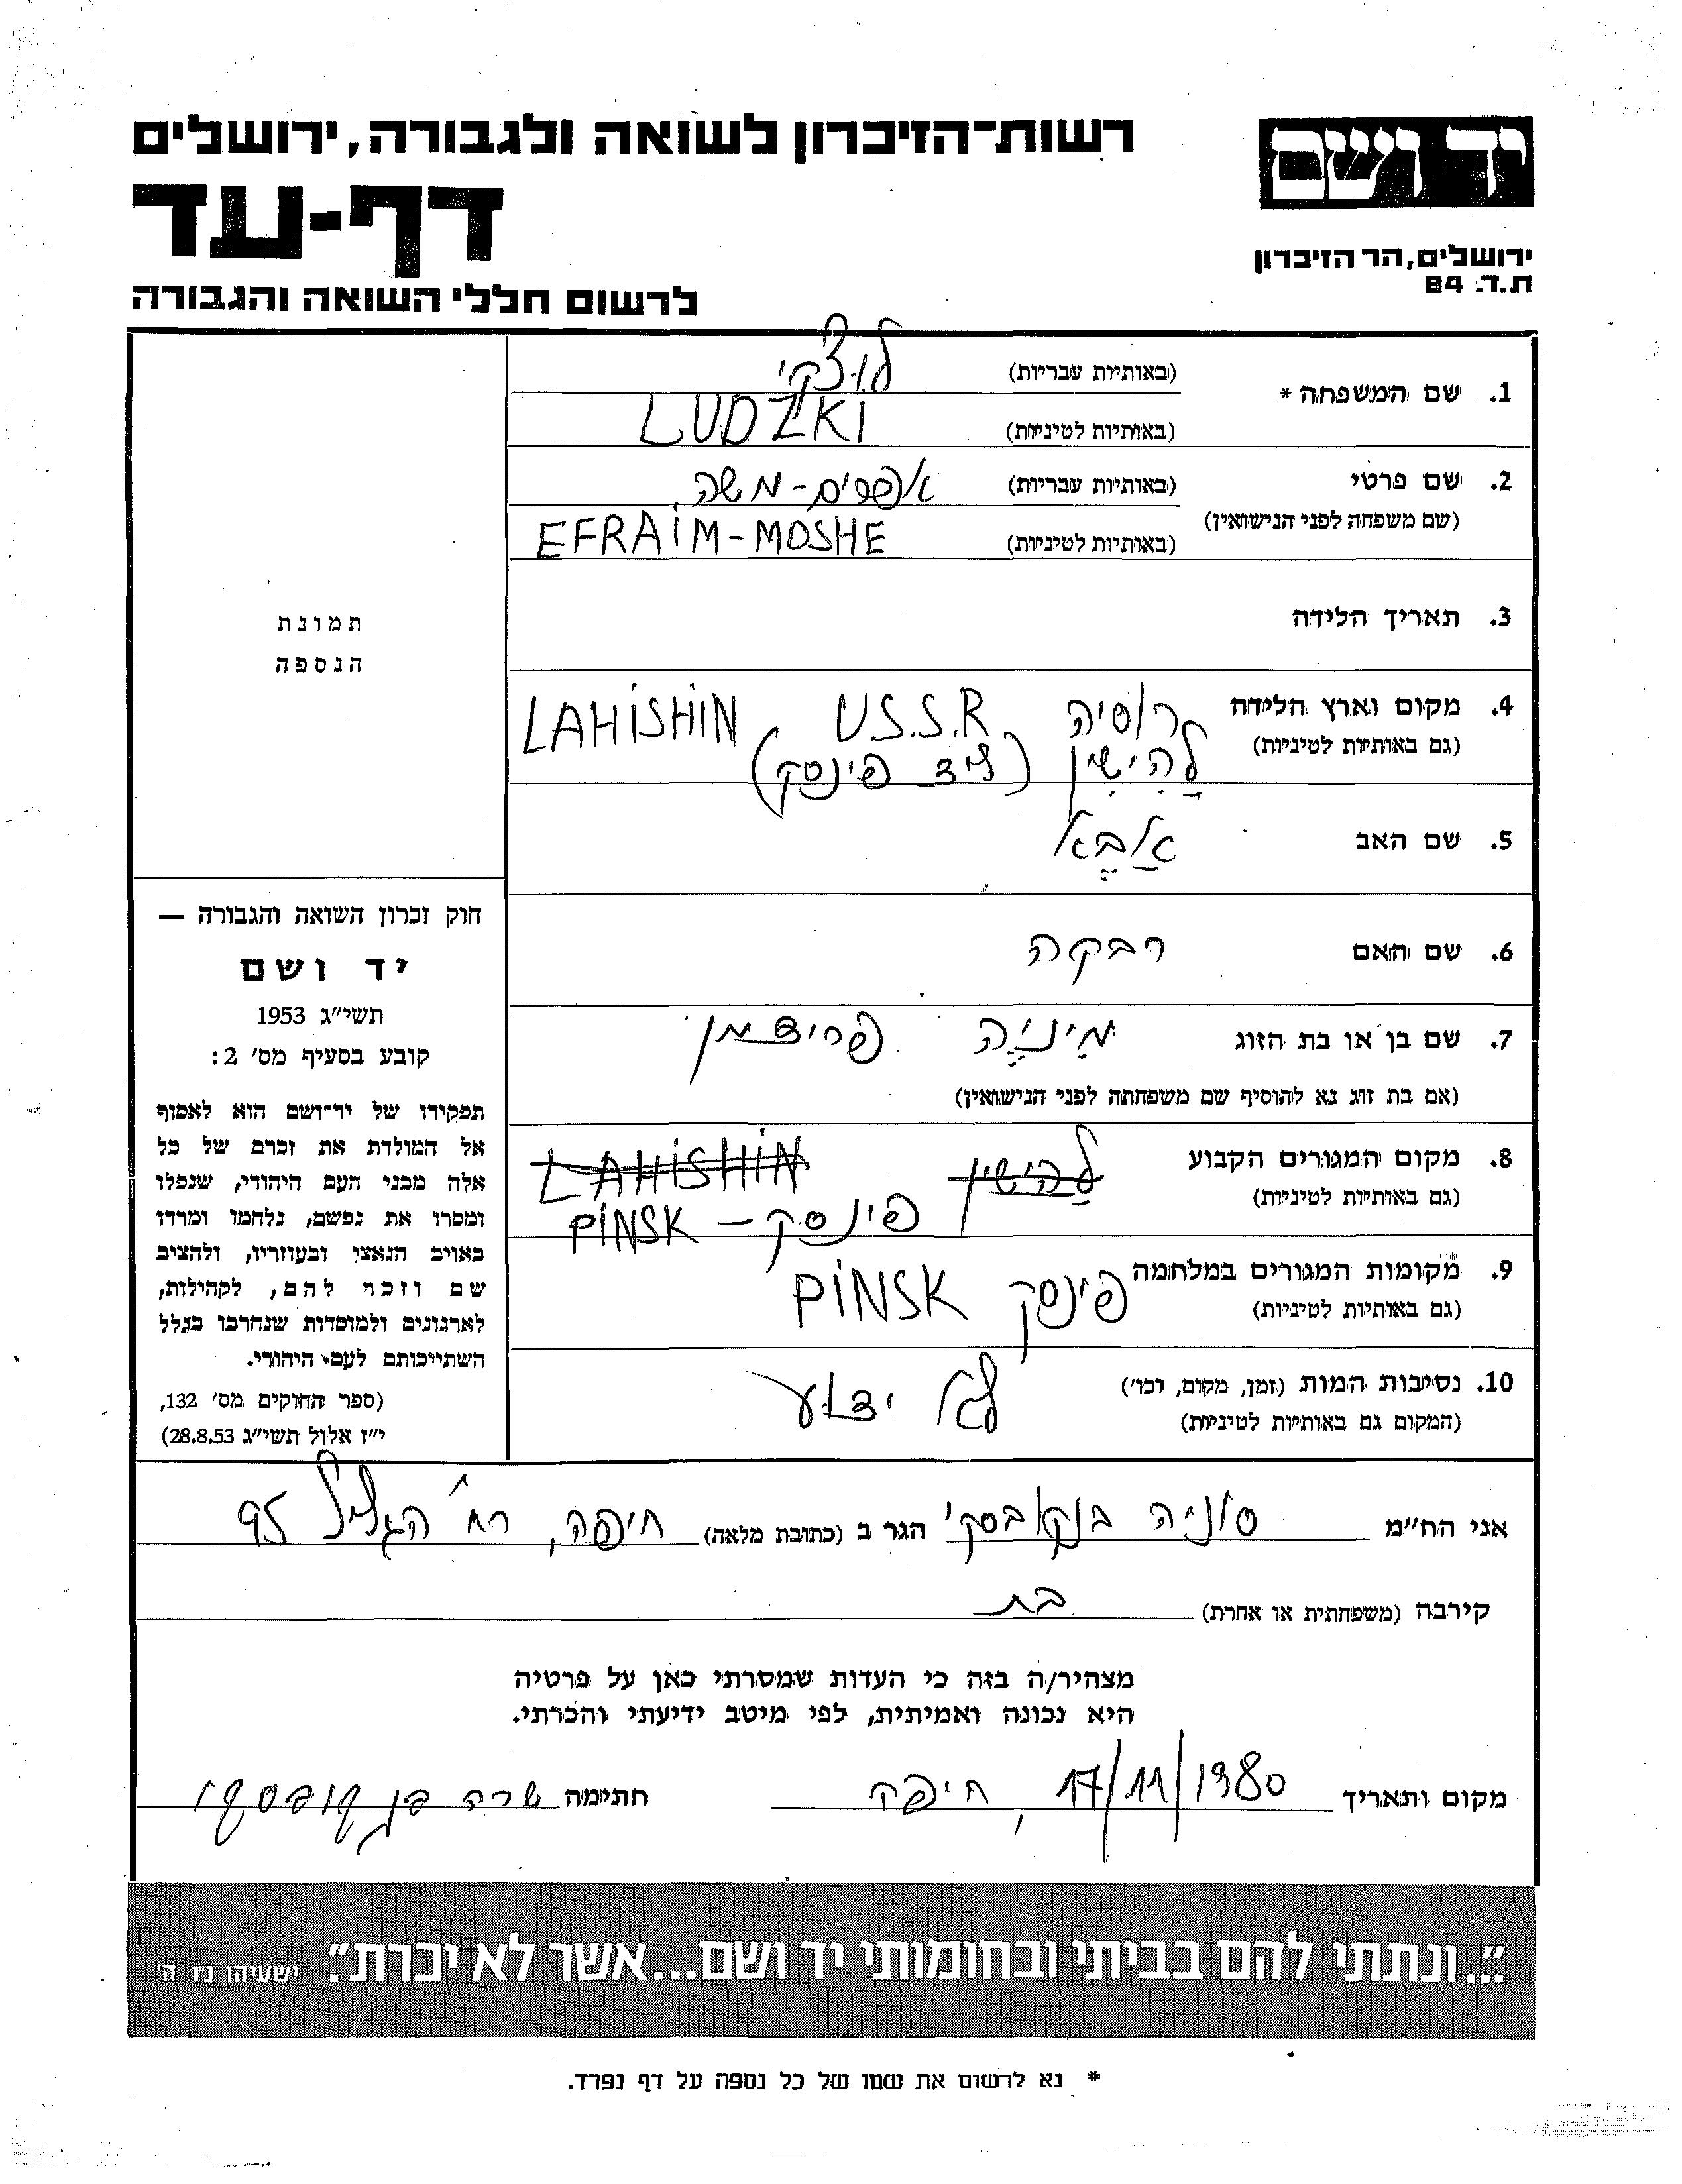 רשות־הזיכרון לשואה ולגבורה, ירושלים
יד ושם
דף-עד
ירושלים, הר הזיכרון
ת.ד. 84
לרשום חללי השואה והגבורה
1. שם המשפחה * (באותיות עבריות) לודצקי
(באותיות לטיניות) LUDZKI
2. שם פרטי (באותיות עבריות) אפרים-משה
(שם משפחה לפני הנישואין)
(באותיות לטיניות) EFRAIM-MOSHE
3. תאריך הלידה
תמונת
הנספה
4. מקום וארץ הלידה רוסיה U.S.S.R LAHISHIN
(גם באותיות לטיניות) לַהִישִין (ליד פינסק)
5. שם האב אַבָּא
6. שם האם רבקה
7. שם בן או בת הזוג מִינְיָה פרידמן
(אם בת זוג נא להוסיף שם משפחתה לפני הנישואין)
8. מקום המגורים הקבוע להישין LAHISHIN
(גם באותיות לטיניות) פינסק - PINSK
9. מקומות המגורים במלחמה פינסק PINSK
(גם באותיות לטיניות)
10. נסיבות המות (זמן, מקום, וכו') לא ידוע
(המקום גם באותיות לטיניות)
חוק זכרון השואה והגבורה —
יד ושם
תשי"ג 1953
קובע בסעיף מס' 2:
תפקידו של יד־ושם הוא לאסוף
אל המולדת את זכרם של כל
אלה מבני העם היהודי, שנפלו
ומסרו את נפשם, נלחמו ומרדו
באויב הנאצי ובעוזריו, ולהציב
שם וזכר להם, לקהילות,
לארגונים ולמוסדות שנחרבו בגלל
השתייכותם לעם היהודי.
(ספר החוקים מס' 132,
י"ז אלול תשי"ג 28.8.53)
אני הח"מ סוניה בנקובסקי הגר ב (כתובת מלאה) חיפה, רח' הגליל 95
קירבה (משפחתית או אחרת) בת
מצהיר/ה בזה כי העדות שמסרתי כאן על פרטיה
היא נכונה ואמיתית, לפי מיטב ידיעתי והכרתי.
מקום ותאריך 17/11/1980, חיפה חתימה שרה בנקובסקי
"...ונתתי להם בביתי ובחומותי יד ושם...אשר לא יכרת". ישעיהו נ"ו ה'
* נא לרשום את שמו של כל נספה על דף נפרד.